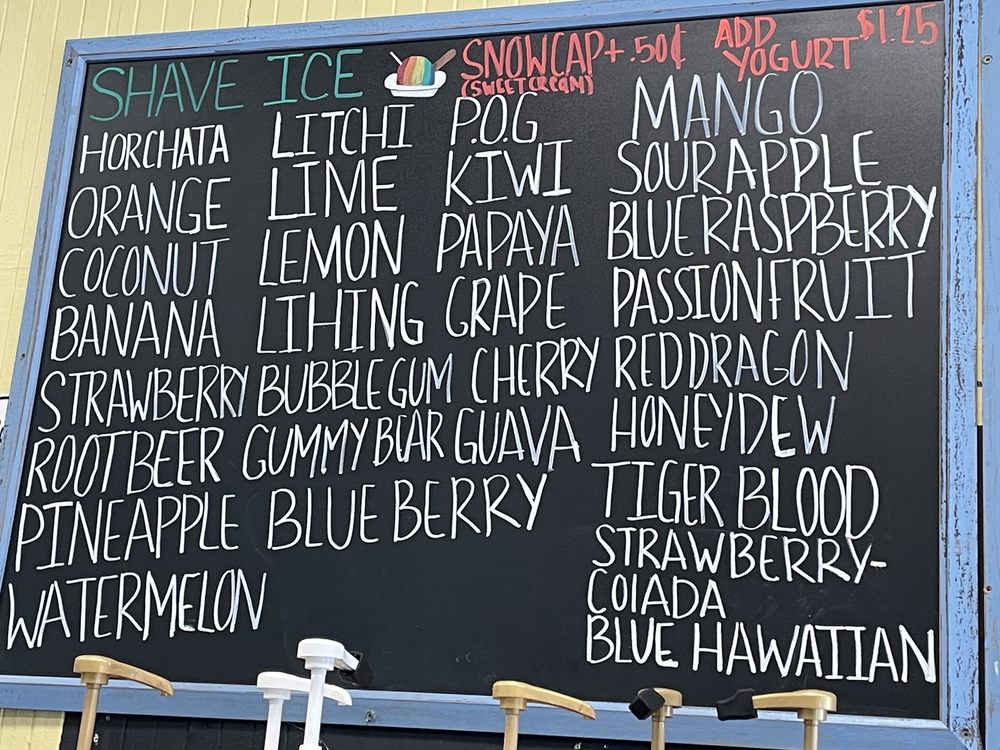 SHAVE ICE
SNOWCAP + .50¢
(SWEETCREAM)
ADD
YOGURT $1.25
HORCHATA
ORANGE
COCONUT
BANANA
STRAWBERRY
ROOTBEER
PINEAPPLE
WATERMELON
LITCHI
LIME
LEMON
LIHING
BUBBLEGUM
GUMMY BEAR
BLUEBERRY
P.O.G
KIWI
PAPAYA
GRAPE
CHERRY
GUAVA
MANGO
SOUR APPLE
BLUE RASPBERRY
PASSIONFRUIT
RED DRAGON
HONEYDEW
TIGER BLOOD
STRAWBERRY-
COLADA
BLUE HAWAIIAN